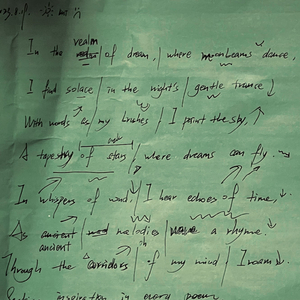 In the realm of dream, where moonbeams dance,
I find solace in the night's gentle trance
With words as my brushes I paint the sky,
A tapestry of stars, where dreams can fly.
In whispers of wind, I hear echoes of time,
As ancient melodies a rhyme
ancient
Through the corridors of my mind I roam
inspiration in every poem